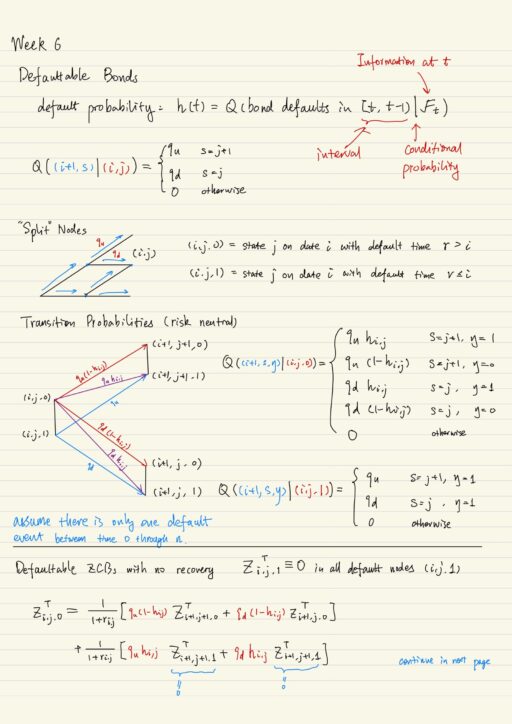 Week 6
Defaultable Bonds
Information at t
default probability: h(t) = Q(bond defaults in [t, t-1) | F_t)
interval
conditional probability
Q((i+1, s) | (i, j)) = { q_u s=j+1
q_d s=j
0 otherwise
"Split" Nodes
q_u
q_d
(i,j)
(i,j,0) = state j on date i with default time τ > i
(i,j,1) = state j on date i with default time τ ≤ i
Transition Probabilities (risk neutral)
(i+1, j+1, 0)
q_u(1-h_{ij})
q_u h_{ij}
(i+1, j+1, 1)
(i,j,0)
q_u
(i,j,1)
q_d(1-h_{ij})
q_d h_{ij}
q_d
(i+1, j, 0)
(i+1, j, 1)
Q((i+1,s,y) | (i,j,0)) = { q_u h_{i,j} s=j+1, y=1
q_u (1-h_{i,j}) s=j+1, y=0
q_d h_{i,j} s=j, y=1
q_d (1-h_{i,j}) s=j, y=0
0 otherwise
Q((i+1,s,y) | (i,j,1)) = { q_u s=j+1, y=1
q_d s=j, y=1
0 otherwise
assume there is only one default
event between time 0 through n.
Defaultable ZCBs with no recovery Z^T_{i,j,1} ≡ 0 in all default nodes (i,j,1)
Z^T_{i,j,0} = 1/(1+r_{ij}) [q_u(1-h_{ij}) Z^T_{i+1,j+1,0} + q_d(1-h_{ij}) Z^T_{i+1,j,0}]
+ 1/(1+r_{ij}) [q_u h_{i,j} Z^T_{i+1,j+1,1} + q_d h_{i,j} Z^T_{i+1,j+1,1}]
continue in next page
=
0
=
0